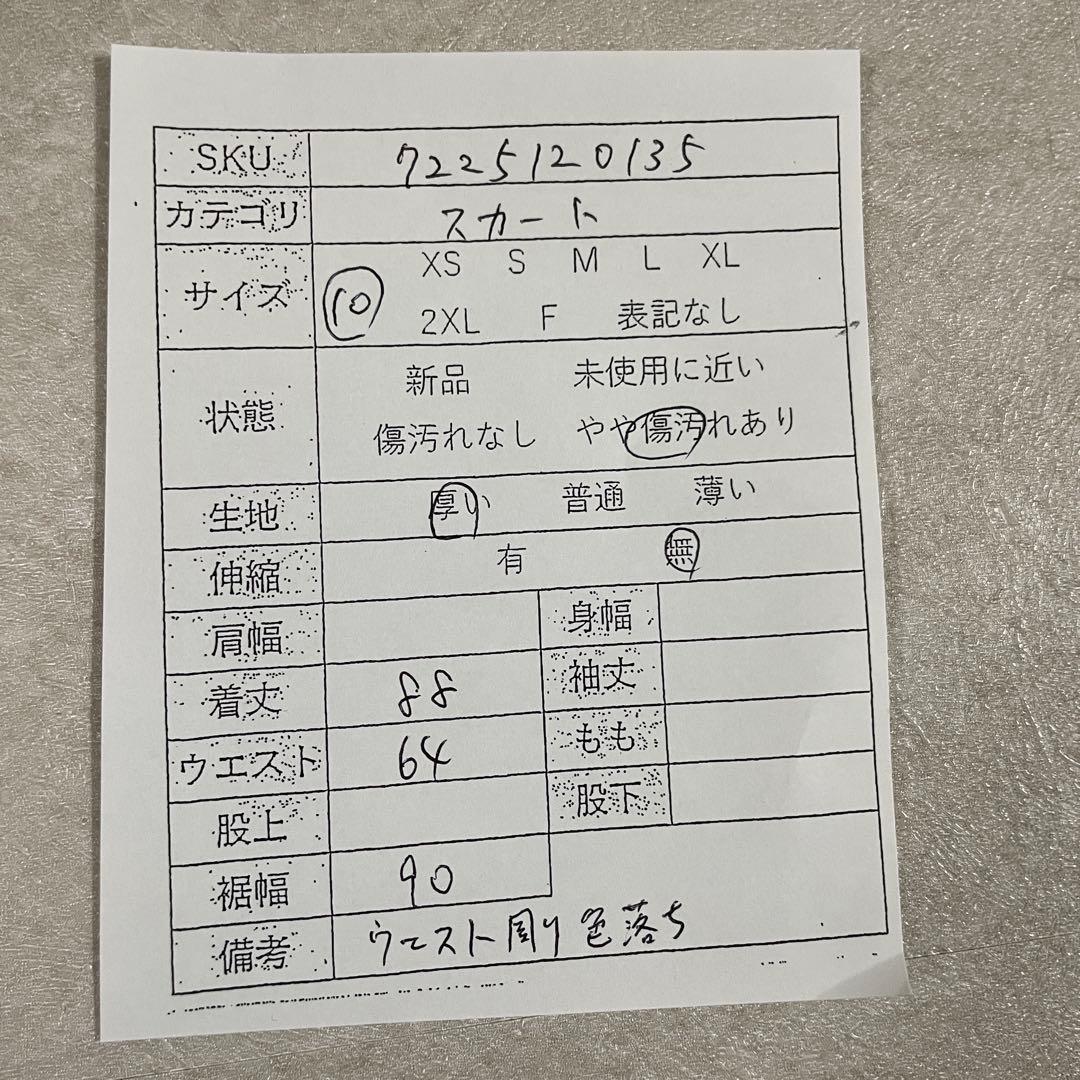 SKU 7225120135
カテゴリ スカート
サイズ 10 XS S M L XL
2XL F 表記なし
状態 新品 未使用に近い
傷汚れなし やや傷汚れあり
生地 厚い 普通 薄い
伸縮 有 無
肩幅 身幅
着丈 88 袖丈
ウエスト 64 もも
股上 股下
裾幅 90
備考 ウエスト周り色落ち